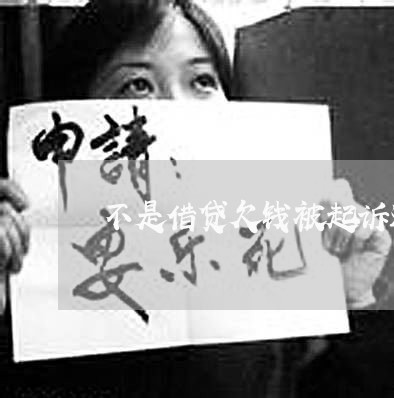 申請：
不是借贷欠钱被起诉
要乐